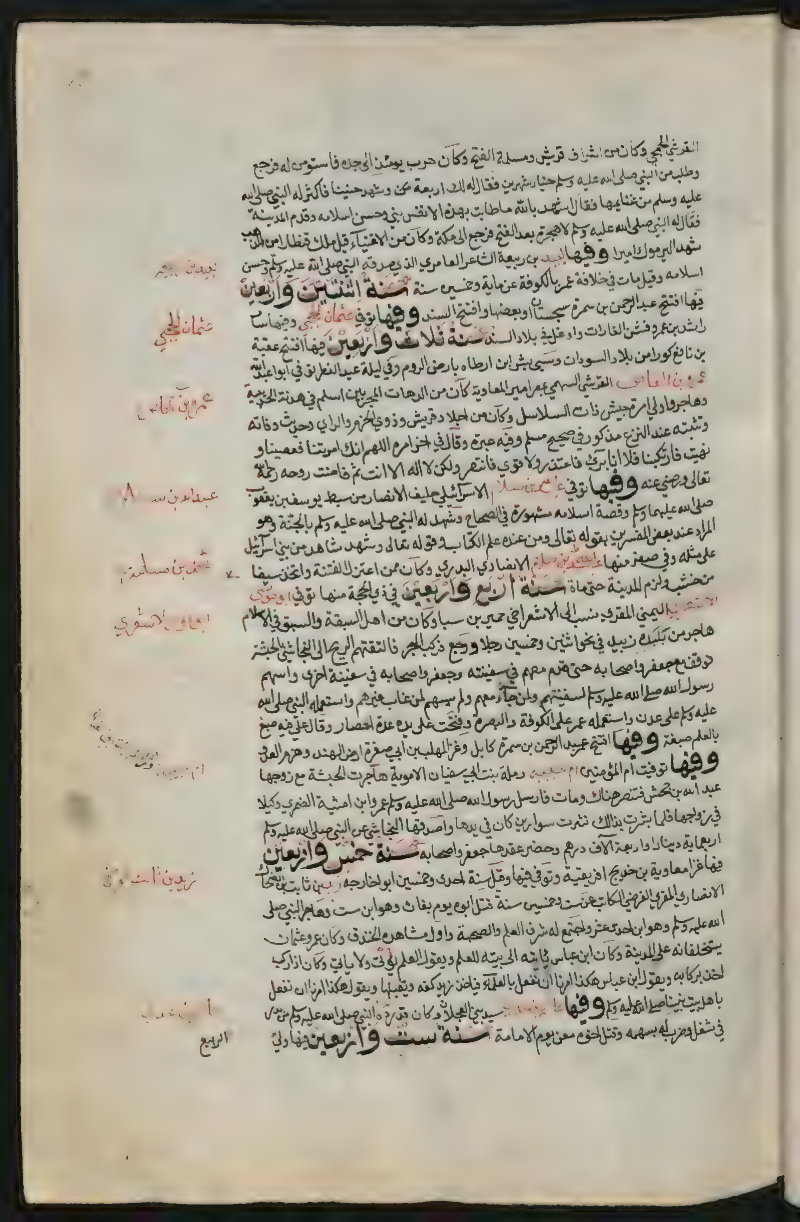 القرشي الجمحي وكان من اشراف قريش ومسلمة الفتح وكان هرب يومئذ الى جده فاستومن له فرجع
وطلب من النبي صلى الله عليه وسلم خيار شهرين فقال له لك اربعة عن وشهد حنينا فاكثر له النبي صلى الله
عليه وسلم من غنايمها فقال اشهد بالله ما طابت بهذه الا نفس نبي وحسن اسلامه وقدم المدينة
فقال له النبي صلى الله عليه وسلم لا هجرة بعد الفتح فرجع الى مكة وكان من الاغنياء قيل ملك قنطار من الذهب
شهد اليرموك اميرا وفيها لبيد بن ربيعة الشاعر العامري الذي صدقه النبي صلى الله عليه وسلم وحسن
اسلامه وقيل مات في خلافة عمر بالكوفة عن ماية وخمسين سنة سنة اثنتين واربعين
فيها افتتح عبد الرحمن بن سمرة سجستان او بعضها وافتتح السند وفيها توفي عثمان الحجبي وفيها سار
راشد بن عمرو فشن الغارات واوغل في بلاد السند سنة ثلاث واربعين فيها افتتح عقبة
بن نافع كورا من بلاد السودان وسبى بشر بن ارطاه بارض الروم وفي ليلة عيد الفطر توفي ابو عبد الله
عمرو بن العاص القرشي السهمي مصر امير المعاوية كان من الدهات المجربين اسلم في هدنة الحديبية
وهاجر وولي امرة جيش ذات السلاسل وكان من اجلاء قريش وذوي الحزم والراي وحديث وفاته
وتثبته عند النزع مذكور في صحيح مسلم وفيه عبرة وقال في اخر امره اللهم انك امرتنا فعصينا و
نهيت فارتكبنا فلا انا بريء فاعتذر ولا قوي فانتصر ولكن لا اله الا انت ثم فاضت روحه رحمه الله
تعالى ورضي عنه وفيها توفي عبد الله بن سلام الاسرائلي حليف الانصار من سبط يوسف بن يعقوب
صلى الله عليهما وسلم وقصة اسلامه مشهورة في الصحاح وشهد له النبي صلى الله عليه وسلم بالجنة وهو
المراد عند بعض المفسرين بقوله تعالى ومن عنده علم الكتاب وقوله تعالى وشهد شاهد من بني اسرآئيل
على مثله وفي صفر منها محمد بن مسلمة الانصاري البدري وكان ممن اعتزل الفتنة واتخذ سيفا
من خشب ولزم المدينة حتى مات سنة اربع واربعين في ذي الحجة منها توفي ابو موسى
الاشعري اليمني المقري نسب الى الاشعر اخي حمير بن سبا وكان من اهل السبقة والسبق في الاسلام
هاجر من بلده زبيد في نحو اثنين وخمسين رجلا ورجع فركب البحر فالقتهم الريح الى النجاشي الحبشة
فوقف مع جعفر واصحابه حتى قدم معهم في سفينته وجعفر واصحابه في سفينة اخرى واسهم
رسول الله صلى الله عليه وسلم لسفينتهم ولمن جآء معهم ولم يسهم لمن غاب غيرهم واستعمله النبي صلى الله
عليه وسلم على عدن واستعمله عمر على الكوفة والبصرة وفتحت على يده عدة امصار وقال علي فيه صبغ
بالعلم صبغة وفيها افتتح عبد الرحمن بن سمرة كابل وغزا المهلب بن ابي صفرة ارض الهند وهزم العدو
وفيها توفيت ام المؤمنين ام حبيبة رملة بنت ابي سفيان الاموية هاجرت الحبشة مع زوجها
عبد الله بن جحش فتنصر هناك ومات فارسل رسول الله صلى الله عليه وسلم عمرو بن امية الضمري وكيلا
في زواجها فلما بشرت بذلك نثرت سوارين كان في يدها واصدقها النجاشي عن النبي صلى الله عليه وسلم
اربعماية دينار او اربعة الاف درهم وحضر عقدها جعفر واصحابه سنة خمس واربعين
فيها غزا معاوية بن خديج افريقية وتوفي فيها وقيل سنة احدى وخمسين ابو خارجه زيد بن ثابت بن الضحاك
الانصاري المقري الفرضي الكاتب عن ست وخمسين سنة قتل ابوه يوم بغاث وهو ابن ست وهاجر النبي صلى
الله عليه وسلم وهو ابن احدى عشر واجتمع له شرف العلم والصحبة واول مشاهده الخندق وكان عمر وعثمان
يستخلفانه على المدينة وكان ابن عباس ياتيه الى بيته للعلم ويقول العلم يؤتى ولا ياتي وكان اذا ركب
اخذ بركابه ويقول ابن عباس هكذا امرنا ان نفعل بالعلماء فياخذ زيد كفه ويقبلها ويقول هكذا امرنا ان نفعل
باهل بيت نبينا صلى الله عليه وسلم وفيها عاصم بن عدي سيد بني العجلان وكان قد رده النبي صلى الله عليه وسلم من بدر
في شغل وضرب له بسهمه وقتل اخوه معن يوم الامامة سنة ست واربعين فيها ولي
لبيد بن ربيعه
عثمان الحجبي
عمرو بن العاص
عبد الله بن سلام
محمد بن مسلمة
ابو موسى الاشعري
زيد بن ثابت
عاصم بن عدي
الربيع